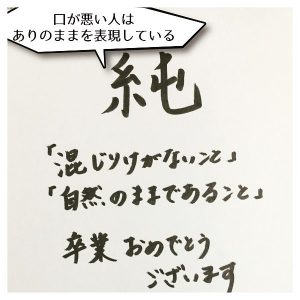 口が悪い人は
ありのままを表現している
純
「混じりけがないこと」
「自然のままであること」
卒業 おめでとう
ございます